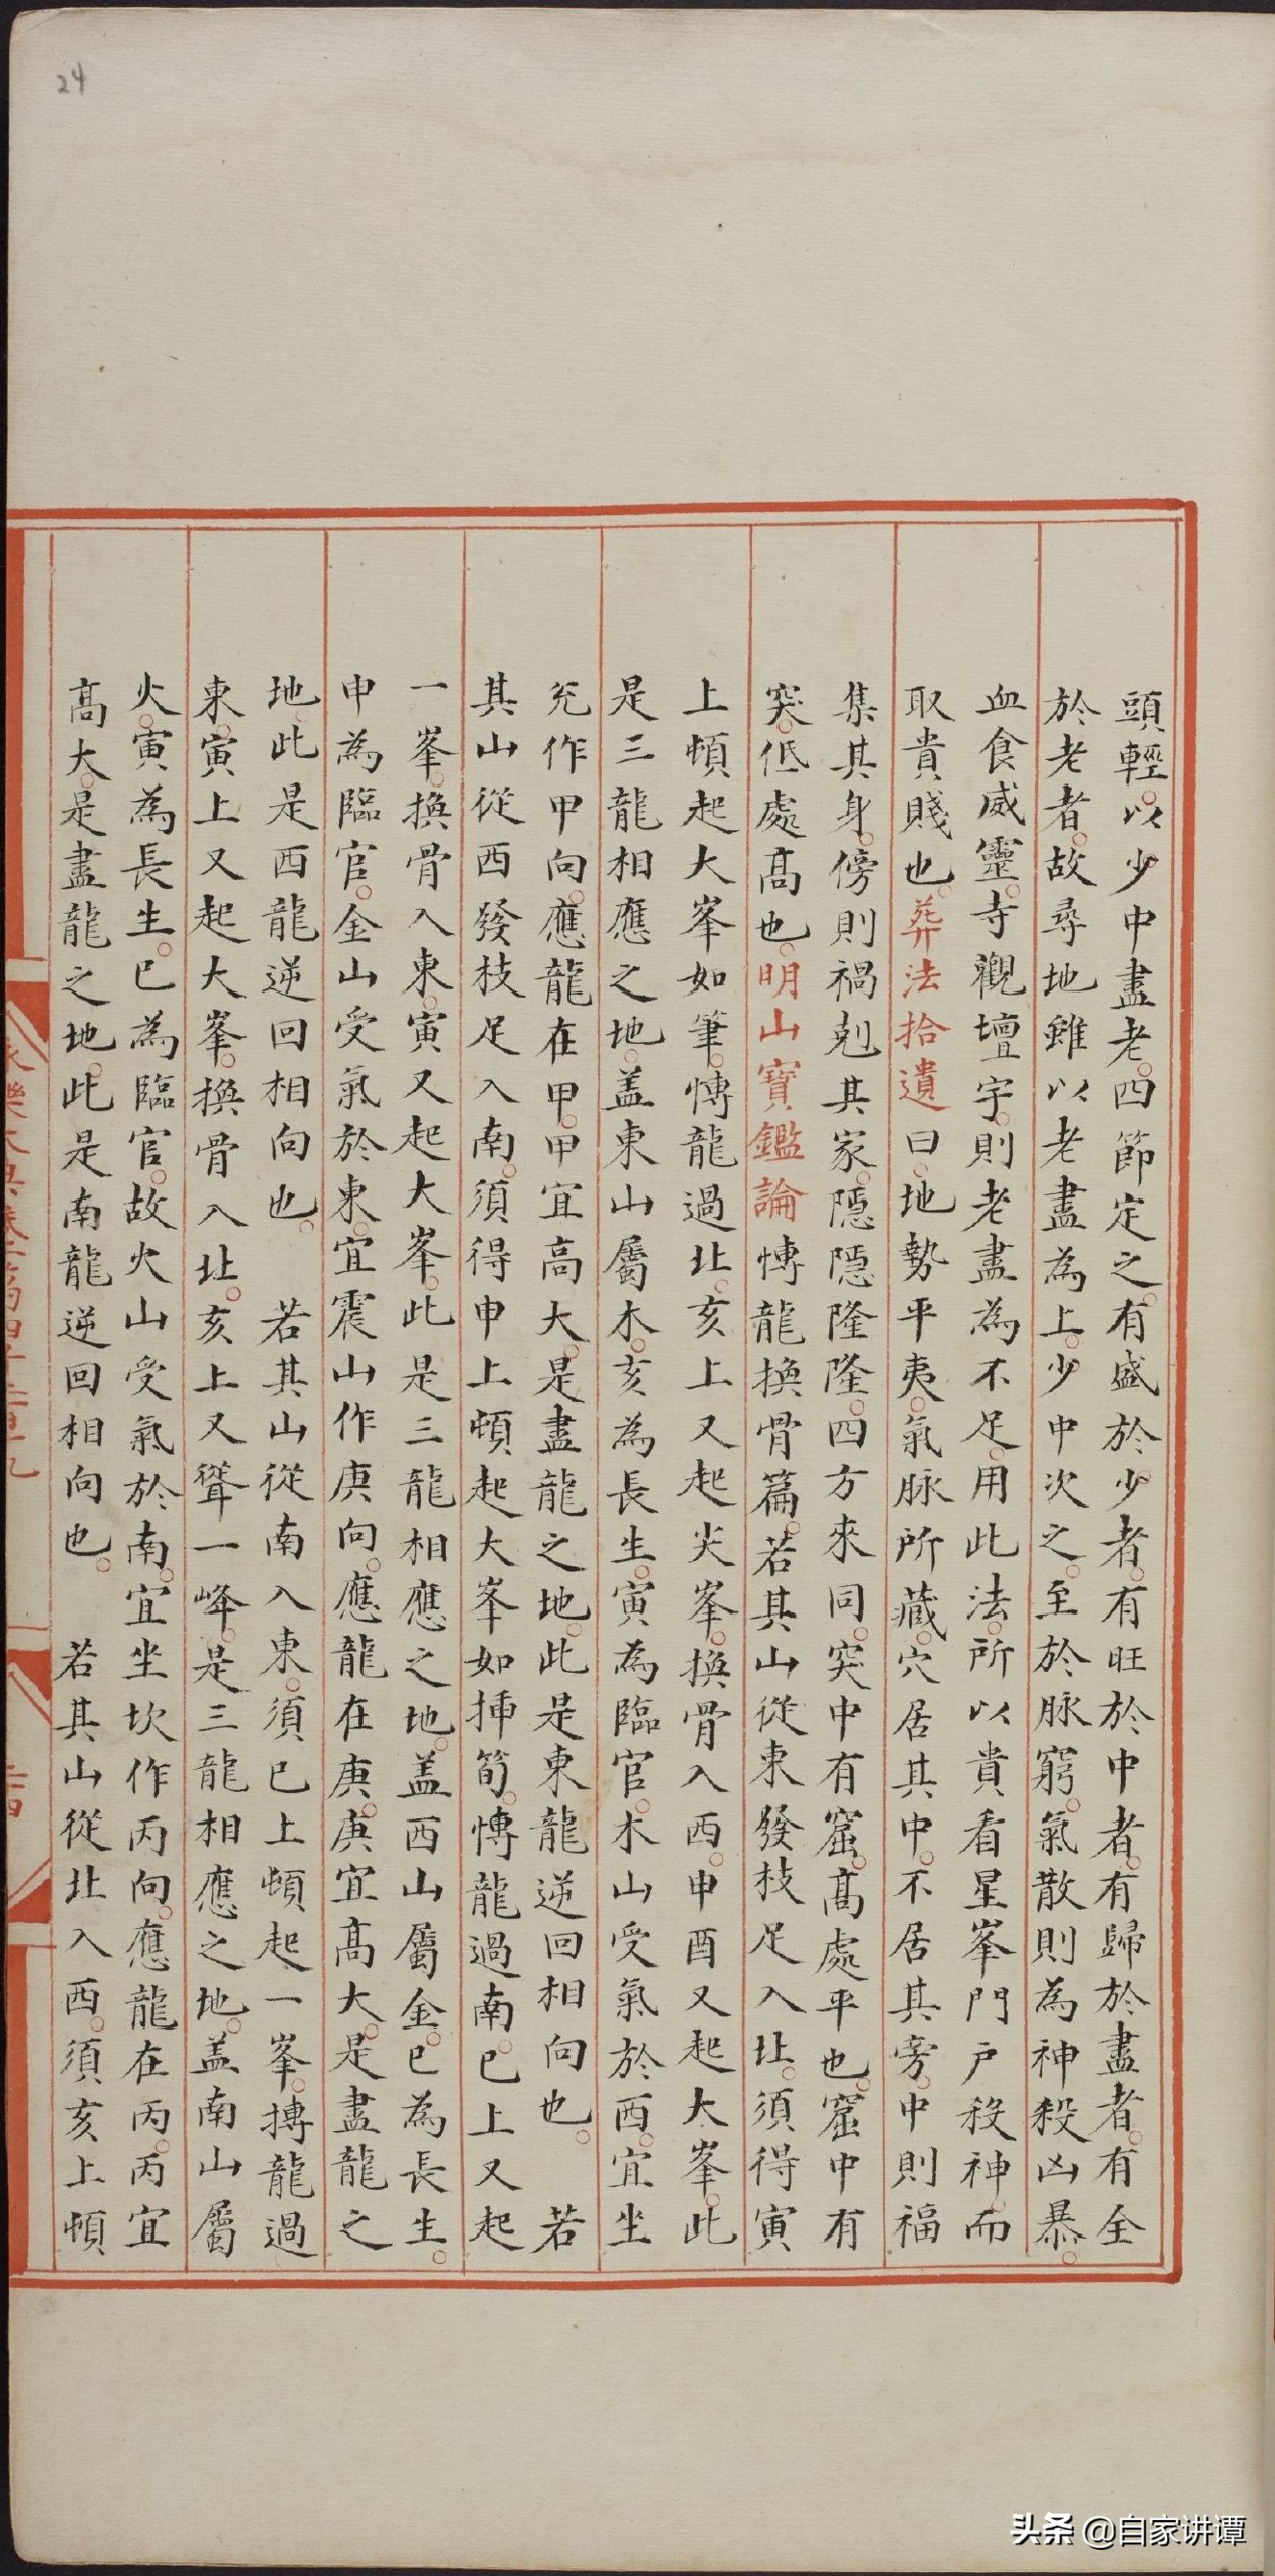 24
頭輕以少中盡老四節定之有盛於少者有旺於中者有歸於盡者有全
於老者故尋地雖以老盡為上少中次之至於脉窮氣散則為神殺凶暴
血食威靈寺觀壇宇則老盡為不足用此法所以貴看星峯門戶殺神而
取貴賤也葬法拾遺曰地勢平夷氣脉所藏穴居其中不居其旁中則福
集其身傍則禍剋其家隱隱隆隆四方來同突中有窟高處平也窟中有
突低處高也明山寶鑑論愽龍換骨篇若其山從東發枝足入北須得寅
上頓起大峯如筆愽龍過北亥上又起尖峯換骨入西申酉又起大峯此
是三龍相應之地盖東山屬木亥為長生寅為臨官木山受氣於西宜坐
兊作甲向應龍在甲甲宜高大是盡龍之地此是東龍逆回相向也 若
其山從西發枝足入南須得申上頓起大峯如揷筍愽龍過南巳上又起
一峯換骨入東寅又起大峯此是三龍相應之地盖西山屬金巳為長生
申為臨官金山受氣於東宜震山作庚向應龍在庚庚宜高大是盡龍之
地此是西龍逆回相向也 若其山從南入東須巳上頓起一峯搏龍過
東寅上又起大峯換骨入北亥上又聳一峰是三龍相應之地盖南山屬
火寅為長生巳為臨官故火山受氣於南宜坐坎作丙向應龍在丙丙宜
高大是盡龍之地此是南龍逆回相向也 若其山從北入西須亥上頓
头条 @自家讲谭